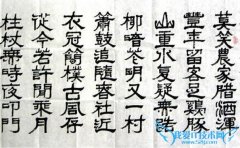 莫笑農家臘酒渾
豐年留客足雞豚
山重水复疑無路
柳暗花明又一村
簫鼓追隨春社近
衣冠簡樸古風存
從今若許閒乘月
拄杖無時夜叩門